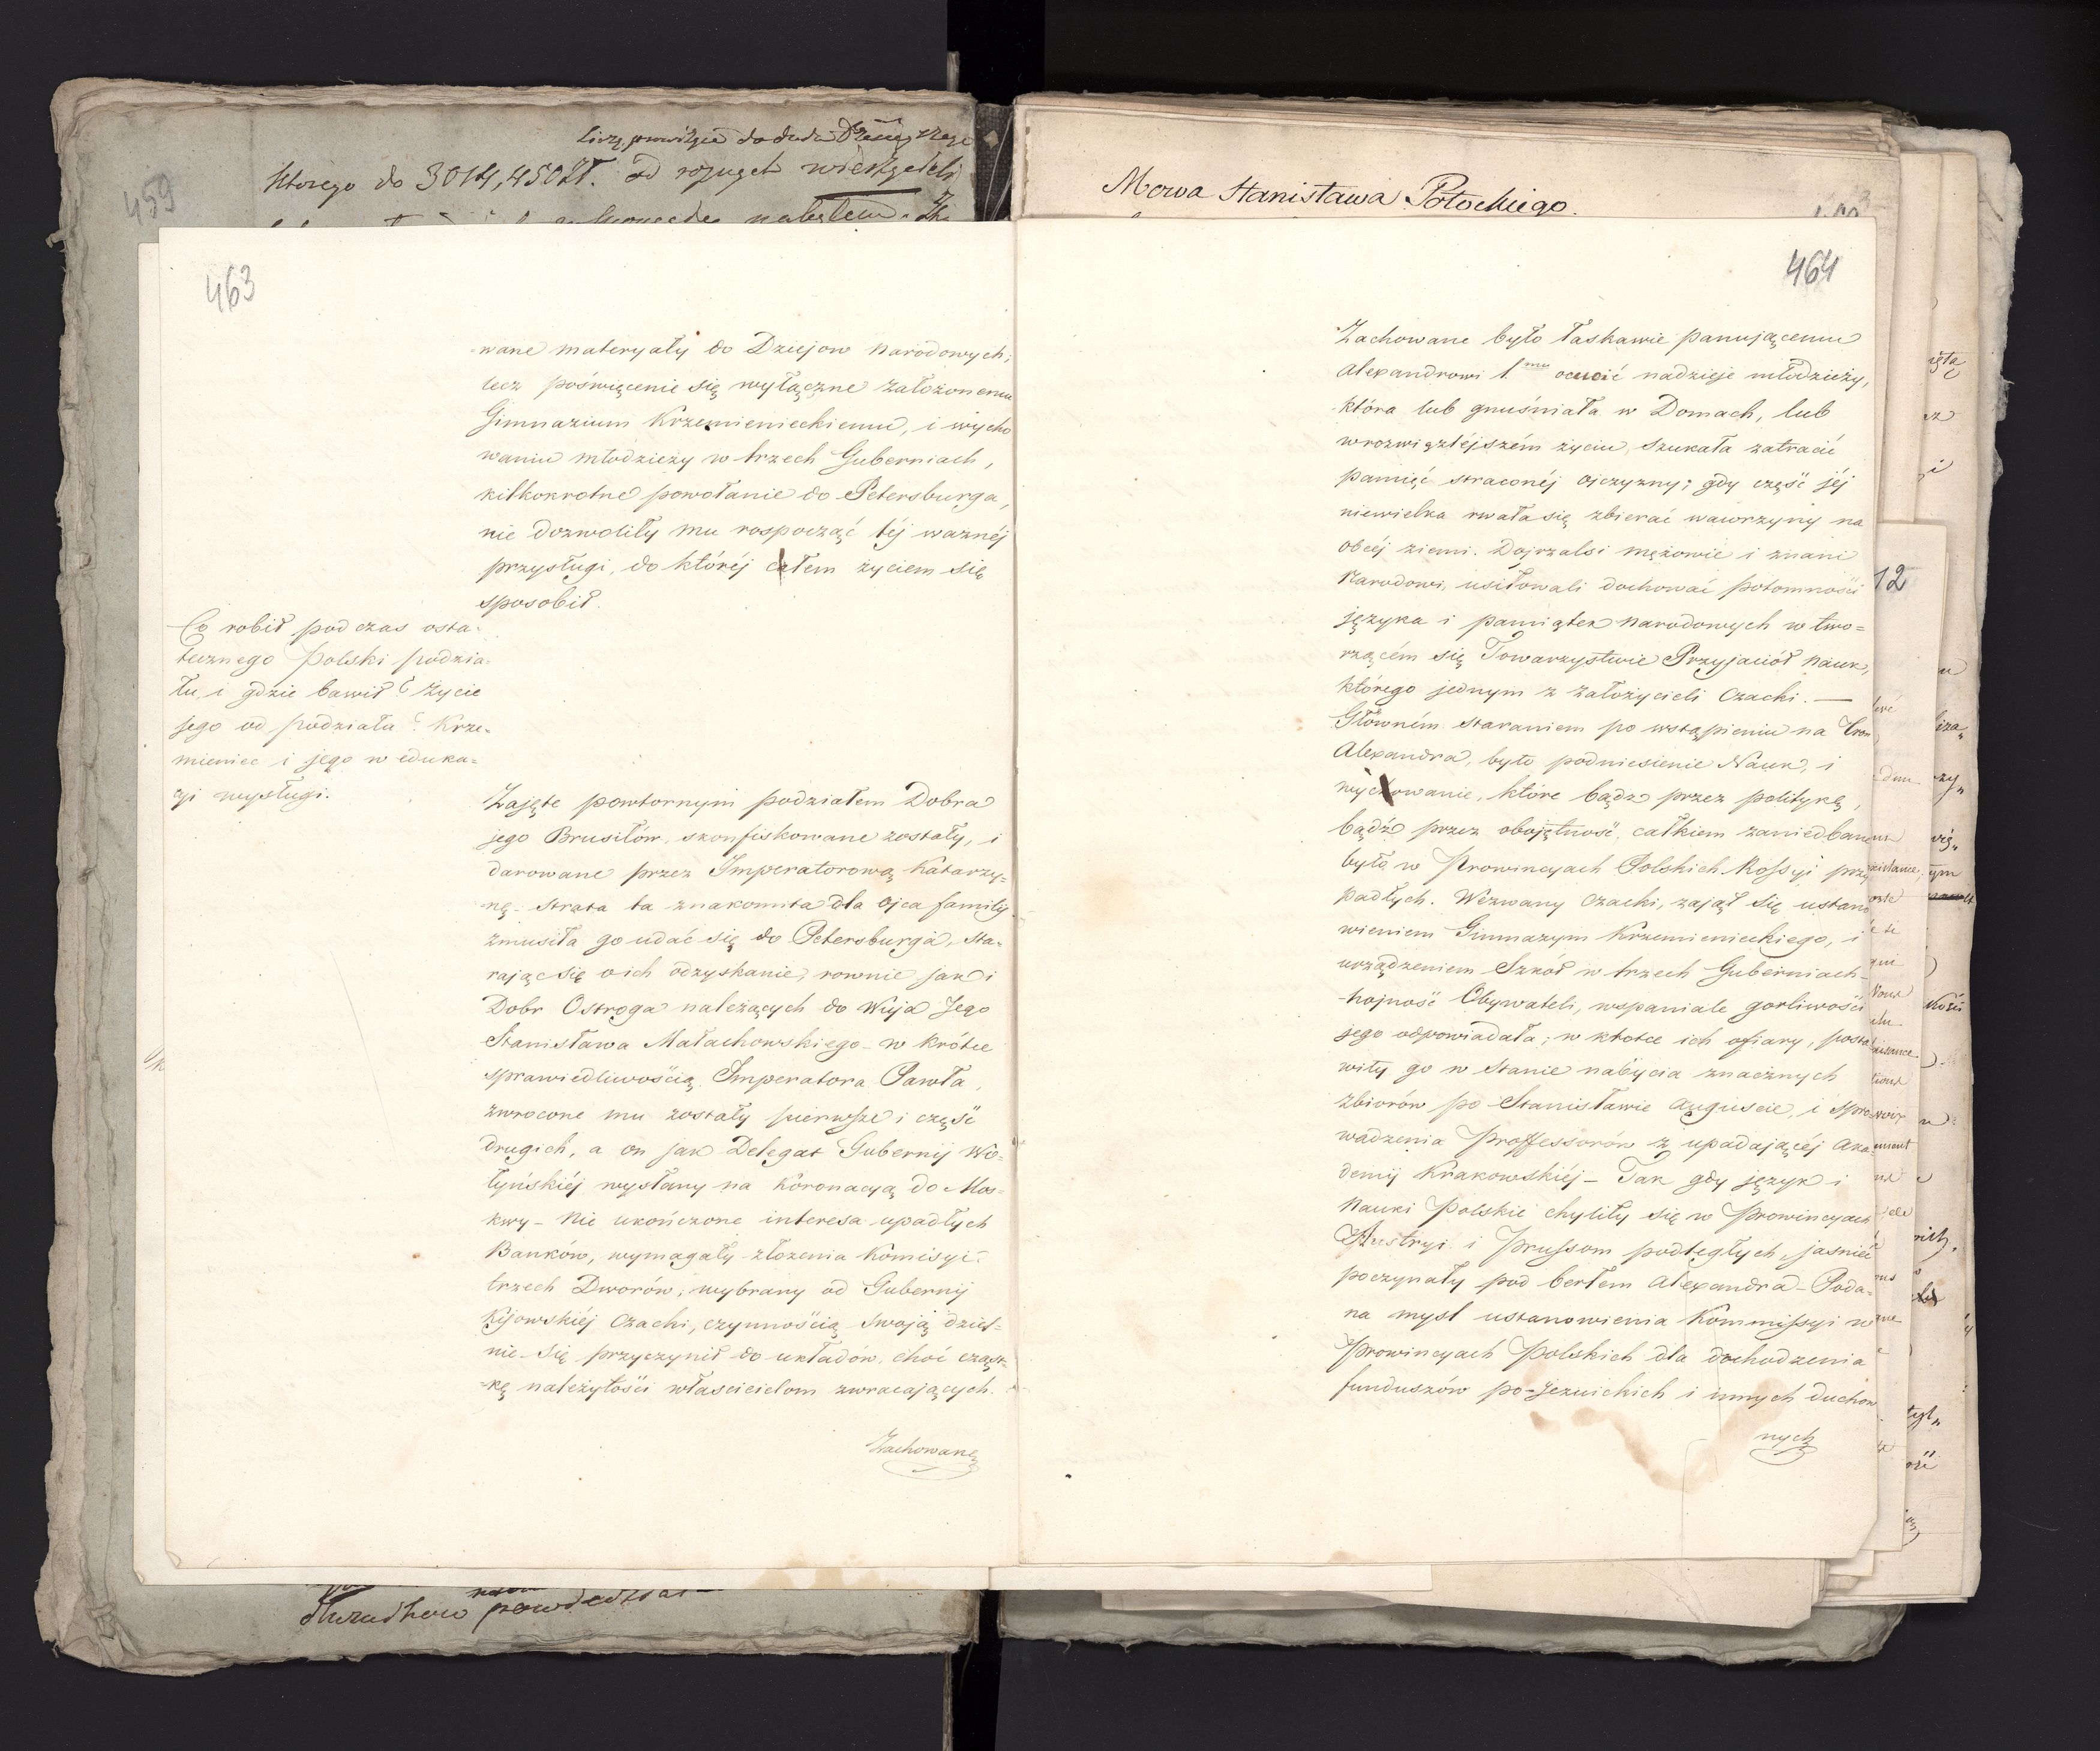 459
liczę
którego do 3014,450 Zł. od
Mowa Stanisława Potockiego.
463
wane materyały do Dziejow Narodowych;
lecz poświęcenie się wyłączne założonemu
Gimnazium Krzemienieckiemu, i wycho
waniu młodzieży w trzech Guberniach,
kilkokrotne powołanie do Petersburga,
nie dozwoliły mu rospocząć téj ważnéj
przysługi, do któréj całem życiem się
sposobił.
Co robił pod czas osta-
tecznego Polski podzia-
łu, i gdzie bawił? Życie
jego od podziału? Krze-
mieniec i jego w eduka=
cyi wysługi.
Zajęte powtornym podziałem Dobra
jego Brusiłów, skonfiskowane zostały, i
darowane przez Imperatorową Katarzy-
nę - Strata ta znakomita dla ojca familij
zmusiła go udać się do Petersburga, sta-
rając się o ich odzyskanie, rownie jak i
Dobr Ostroga należących do Wuja Jego
Stanisława Małachowskiego - w krótce
sprawiedliwością Imperatora Pawła,
zwrocone mu zostały pierwsze i część
drugich, a on jak Delegat Gubernij Wo-
łyńskiéj wysłany na koronacyą do Mos-
kwy - Nie ukończone interesa upadłych
Banków, wymagały złożenia Komisyi
trzech Dworów; wybrany od Gubernij
Kijowskiéj Czacki, czynnością swoją dziel-
nie się przyczynił do układów, choć cząst-
kę należytości właścicielom zwracających.
Zachowane
464
Zachowane było łaskawie panującemu
Alexandrowi 1.mu ocucić nadzieje młodzieży,
która lub gnuśniała w Domach, lub
w rozwięzłéjszém życiu, szukała zatracić
pamięć straconéj ojczyzny; gdy część jéj
niewielka rwała się zbierać wawrzyny na
obcéj ziemi. Dojrzalsi mężowie i znani
Narodowi, usiłowali dochować potomności
języka i pamiątek narodowych w two=
rzącém się Towarzystwie Przyjaciół Nauk,
którego jednym z założycieli Czacki. —
Głowném staraniem po wstąpieniu na Tron
Alexandra, było podniesienie Nauk, i
wychowanie, które bądz przez politykę,
bądź przez obojętność, całkiem zaniedbane
było w Prowincyach Polskich Rossyi przy
padłych. Wezwany Czacki, zajął się ustano
wieniem Gimnazym Krzemienieckiego, i
urządzeniem Szkół w trzech Guberniach-
-hojność Obywateli, wspaniale gorliwości
jego odpowiadała; w krotce ich ofiary, posta
wiły go w stanie nabycia znacznych
zbiorów po Stanisławie Auguscie, i spro
wadzenia Proffessorów z upadającéj Aka
demij Krakowskiéj - Tak gdy język i
Nauki Polskie chyliły się w Prowincyach
Austryi i Prussom podległych, jasnieć
poczynały pod berłem Alexandra - Poda-
na mysl ustanowienia Kommissyi w
Prowincyach Polskich dla dochodzenia
funduszów po-jezuickich i innych duchow
nych
12